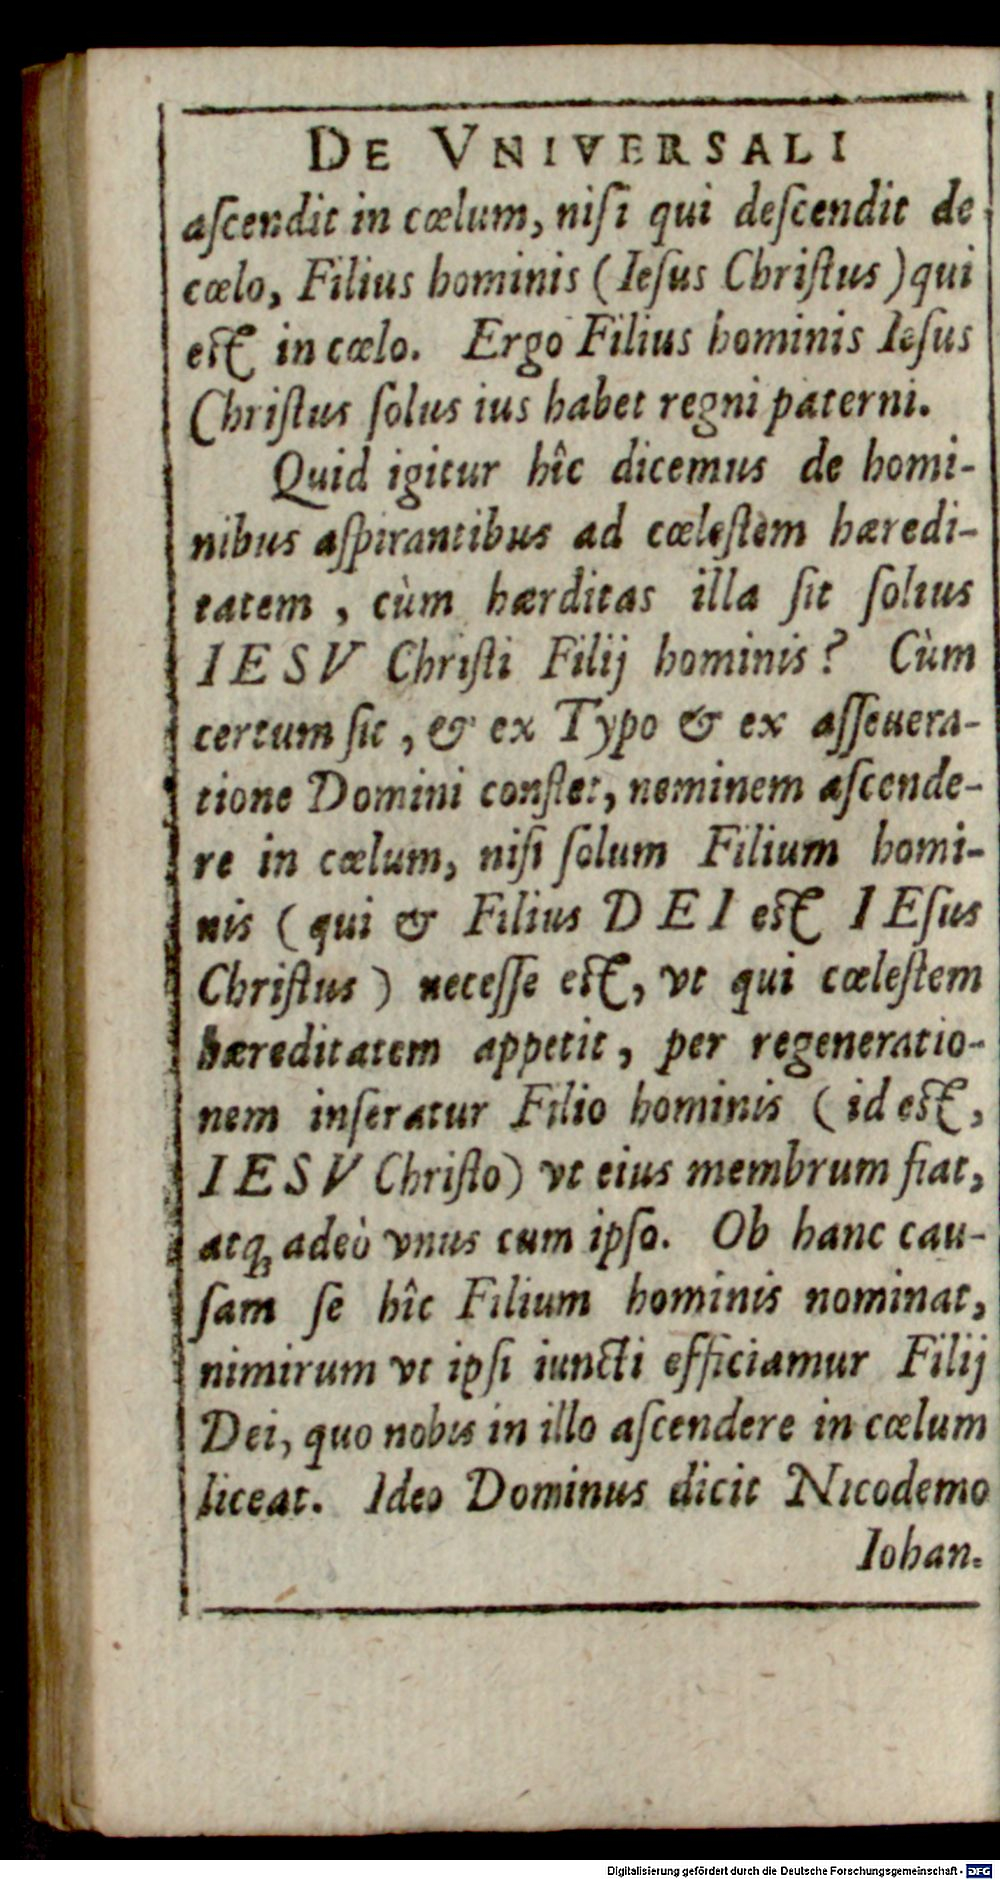 DE VNIVERSALI
aſcendit in cœlum, niſi qui deſcendit de
cœlo, Filius hominis (Ieſus Chriſtus) qui
eſt in cœlo. Ergo Filius hominis Ieſus
Chriſtus ſolus ius habet regni paterni.
Quid igitur hîc dicemus de homi-
nibus aſpirantibus ad cœleſtem hæredi-
tatem, cùm hærditas illa ſit ſolius
IESV Chriſti Filij hominis? Cùm
certum ſit, & ex Typo & ex aſſeuera-
tione Domini conſtet, neminem aſcende-
re in cœlum, niſi ſolum Filium homi-
nis (qui & Filius DEI eſt IEſus
Chriſtus) neceſſe eſt, vt qui cœleſtem
hæreditatem appetit, per regeneratio-
nem inſeratur Filio hominis (id eſt,
IESV Chriſto) vt eius membrum fiat,
atq; adeò vnus cum ipſo. Ob hanc cau-
ſam ſe hîc Filium hominis nominat,
nimirum vt ipſi iuncti efficiamur Filij
Dei, quo nobis in illo aſcendere in cœlum
liceat. Ideo Dominus dicit Nicodemo
Iohan.
Digitalisierung gefördert durch die Deutsche Forschungsgemeinschaft - DFG